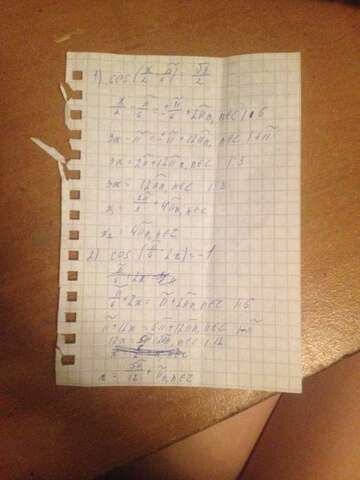 1) cos(x/2 - π/6) = √3/2
x/2 - π/6 = ±π/6 + 2πn, n∈Z |·6
3x - π = ±π + 12πn, n∈Z |+π
3x = 2π + 12πn, n∈Z |:3
3x = 12πn, n∈Z |:3
x₁ = 2π/3 + 4πn, n∈Z
x₂ = 4πn, n∈Z
2) cos(π/6 + 2x) = -1
π/6 + 2x = π + 2πn, n∈Z |·6
π + 12x = 6π + 12πn, n∈Z |-π
12x = 5π + 12πn |:12
x = 5π/12 + πn, n∈Z